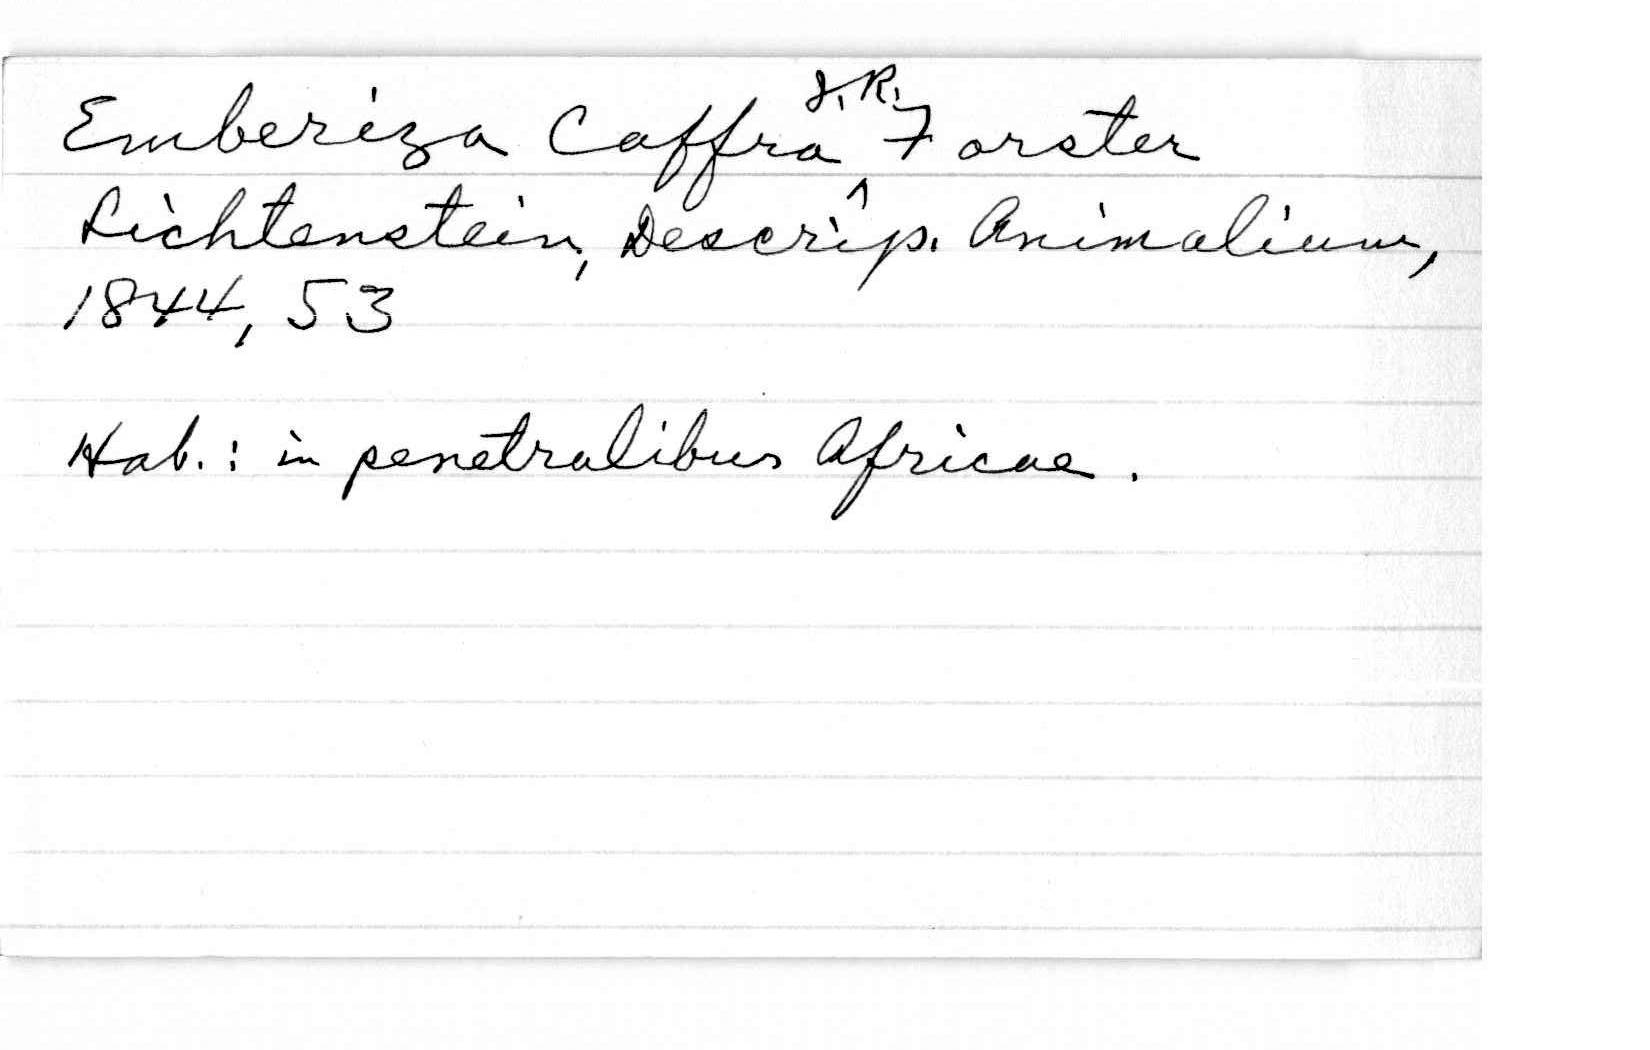 Emberiza Caffra J.R. Forster
Lichtenstein, Descrip. Animalium,
1844, 53
Hab.: in penetralibus Africae.